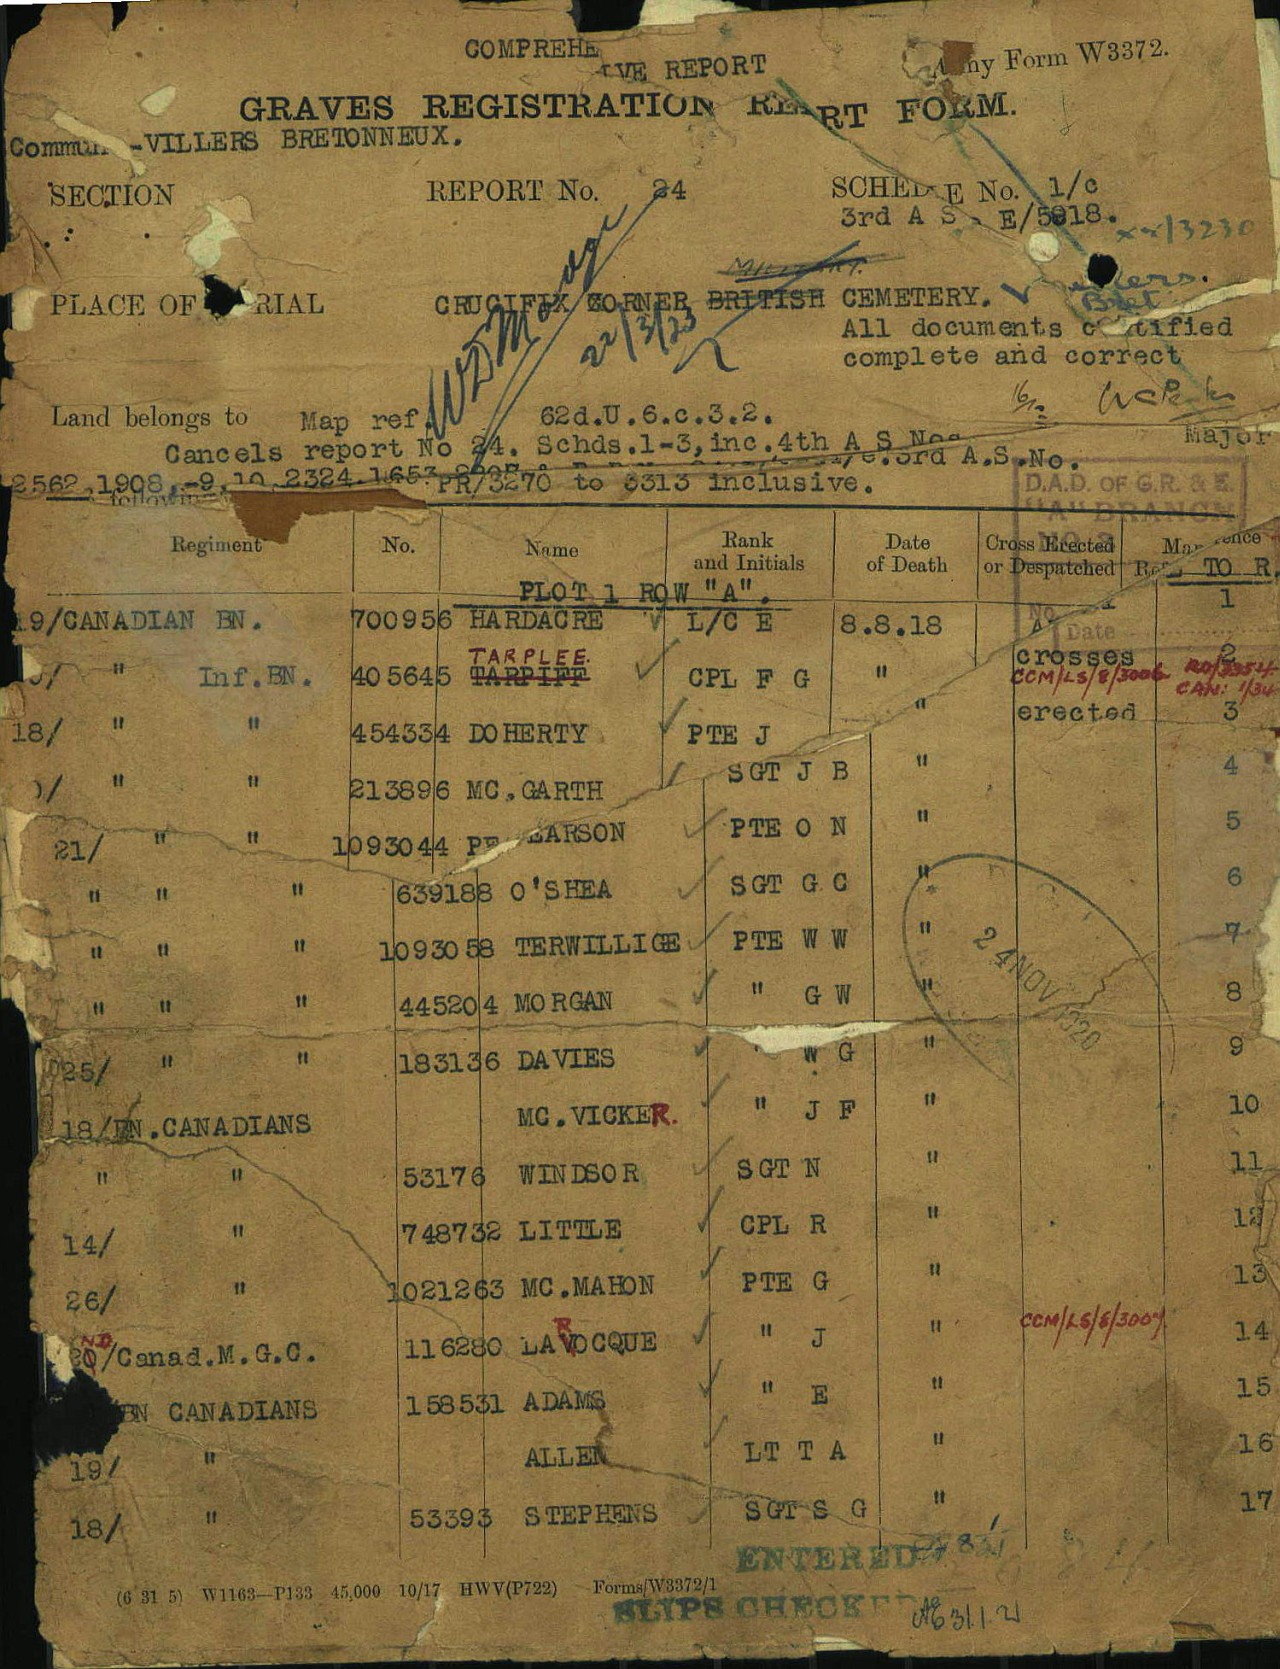 COMPREHE IVE REPORT
Army Form W3372.
GRAVES REGISTRATION RE RT FORM.
Commun -VILLERS BRETONNEUX.
SECTION REPORT No. 24 SCHED E No. 1/c
3rd A S. E/5918.
xx/3230
PLACE OF RIAL CRUCIFIX CORNER BRITISH CEMETERY.
22/3/23
All documents c tified
complete and correct
Land belongs to Map ref. 62d.U.6.c.3.2.
Major
Cancels report No 24. Schds.1-3,inc.4th A S Nos
3rd A.S.No.
2562,1908,-9,10,2324,1653, PR/3270 to 3313 inclusive.
following
D.A.D. OF G.R. & E.
"A" BRANCH
No.
Date
Regiment No. Name Rank and Initials Date of Death Cross Erected or Despatched TO R.
PLOT 1 ROW "A".
19/CANADIAN BN. 700956 HARDACRE L/C E 8.8.18 1
TARPLEE.
/ " Inf.BN. 405645 TARPIFF CPL F G " crosses 2
CCM/LS/8/3006
18/ " " 454334 DOHERTY PTE J " erected 3
/ " " 213896 MC.GARTH SGT J B " 4
21/ " " 1093044 PE EARSON PTE O N " 5
" " " 639188 O'SHEA SGT G C " 6
" " " 1093058 TERWILLIGE PTE W W " 7
24 NOV 1920
" " " 445204 MORGAN " G W " 8
25/ " " 183136 DAVIES " W G " 9
18/BN.CANADIANS MC.VICKER. " J F " 10
" " 53176 WINDSOR SGT N " 11
14/ " 748732 LITTLE CPL R " 12
26/ " 1021263 MC.MAHON PTE G " 13
ND /Canad.M.G.C. 116280 LAROCQUE " J " CCM/LS/8/3007 14
BN CANADIANS 158531 ADAMS " E " 15
19/ " ALLEN LT T A " 16
18/ " 53393 STEPHENS SGT S G " 17
ENTERED
(6 31 5) W1163—P133 45,000 10/17 HWV(P722) Forms/W3372/1
SLIPS CHECKED
31.1.21